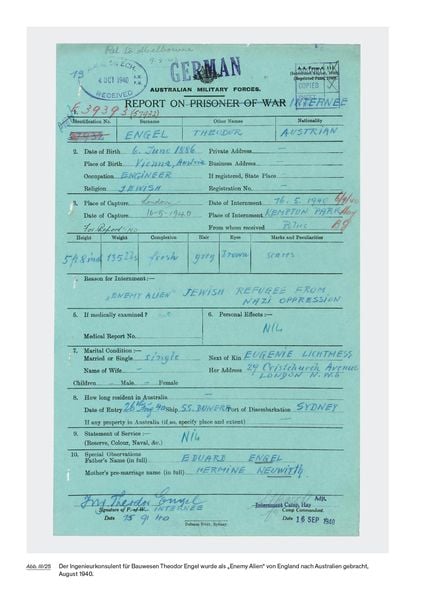 Ret to Melbourne
RECEIVED
4 OCT 1940
GERMAN
A.A. Form A. 111
COPIED
AUSTRALIAN MILITARY FORCES.
REPORT ON PRISONER OF WAR INTERNEE
E 39393 (57932)
Identification No. Surname Other Names Nationality
57932 ENGEL THEODOR AUSTRIAN
2. Date of Birth 6. June 1886 Private Address —
Place of Birth Vienna, Austria Business Address —
Occupation ENGINEER If registered, State Place —
Religion JEWISH Registration No. —
3. Place of Capture London Date of Internment 16.5.1940
Date of Capture 16-5-1940 Place of Internment KEMPTON PARK Hay
From whom received
Height Weight Complexion Hair Eyes Marks and Peculiarities
135 lbs fresh grey brown scars
Reason for Internment:—
"ENEMY ALIEN" JEWISH REFUGEE FROM
NAZI OPPRESSION
5. If medically examined? 6. Personal Effects:—
Medical Report No. NIL
7. Marital Condition:—
Married or Single single Next of Kin EUGENIE LICHTNESS
Name of Wife — Her Address 29 Christchurch Avenue
LONDON N.W.6
Children — Male — Female
8. How long resident in Australia —
Date of Entry Ship SS. DUNERA Port of Disembarkation SYDNEY
If any property in Australia (if so, specify place and extent) —
9. Statement of Service:—
(Reserve, Colour, Naval, &c.) NIL
10. Special Observations
Father's Name (in full) EDUARD ENGEL
Mother's pre-marriage name (in full) HERMINE NEUWIRTH
Ing Theodor Engel
Signature of P. of W. INTERNEE Internment Camp, Hay
Camp Commandant.
Date 15 9 40 Date 16 SEP 1940
Abb. III/25 Der Ingenieurkonsulent für Bauwesen Theodor Engel wurde als „Enemy Alien" von England nach Australien gebracht,
August 1940.